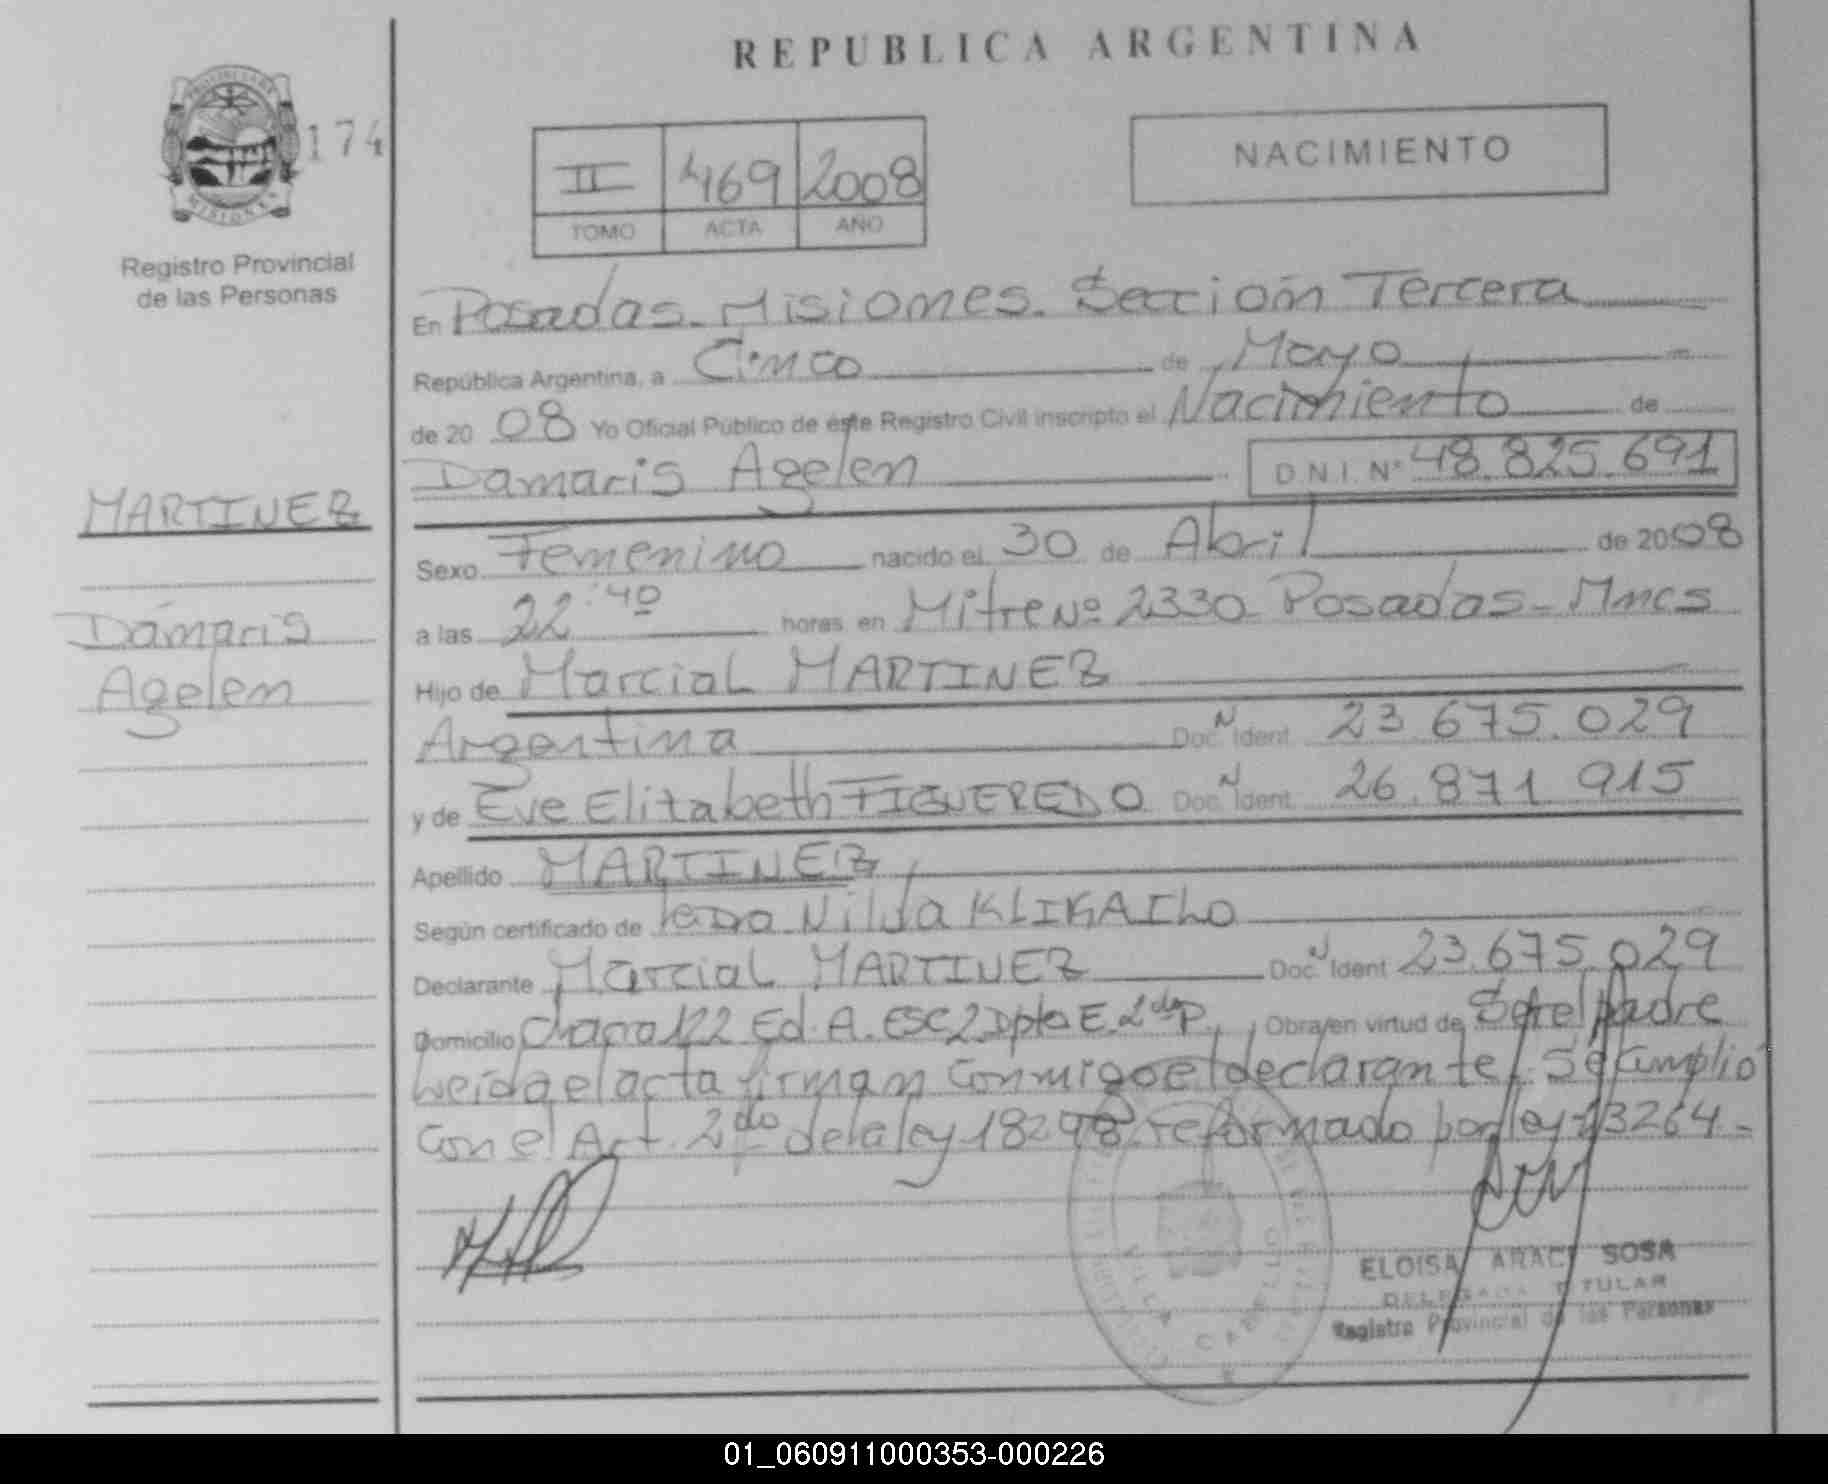 REPUBLICA ARGENTINA
PROVINCIA DE
MISIONES
174
Registro Provincial
de las Personas
II 469 2008
TOMO ACTA AÑO
NACIMIENTO
En Posadas. Misiones. Sección Tercera
República Argentina, a Cinco de Mayo
de 20 08 Yo Oficial Público de éste Registro Civil inscripto el Nacimiento de
Damaris Agelen D.N.I. Nº 48.825.691
MARTINEZ
Damaris
Agelen
Sexo Femenino nacido el 30 de Abril de 2008
a las 22:40 horas en Mitre Nº 2330 Posadas - Mnes
Hijo de Marcial MARTINEZ
Argentina Doc. N Ident. 23.675.029
y de Eve Elizabeth FIGUEREDO Doc. N Ident. 26.871.915
Apellido MARTINEZ
Según certificado de Nilda
Declarante Marcial MARTINEZ Doc. N Ident 23.675.029
Domicilio Chacra 122 Ed. A. ESC 2 Dpto E. 2do P. Obra en virtud de Ser el padre
Leída el acta firman conmigo el declarante. Se cumplió
con el Art. 2do de la ley 18248 reformado por ley 23264 -
ELOISA ARACI SOSA
DELEGADA TITULAR
Registro Provincial de las Personas
VILLA CABELLO
01_060911000353-000226